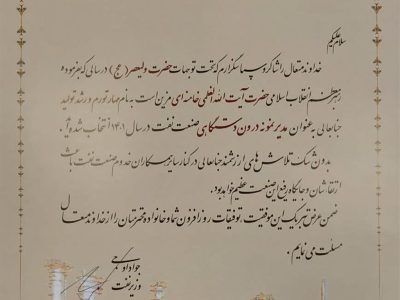 سلام علیکم
خداوند متعال را شاکر و سپاسگزارم که تحت توجهات حضرت ولیعصر (عج) در سالی که به فرموده
رهبر معظم انقلاب اسلامی حضرت آیت الله العظمی خامنه ای مزین است به نام مهار تورم و رشد تولید
جنابعالی به عنوان مدیر نمونه درون دستگاهی صنعت نفت در سال ۱۴۰۱ انتخاب شده اید.
بدون شک تلاش های ارزشمند جنابعالی در کنار سایر همکاران خدوم صنعت نفت باعث
ارتقا شان و جایگاه رفیع این صنعت عظیم خواهد بود.
ضمن عرض تبریک این موفقیت، توفیقات روز افزون شما و خانواده محترمتان را از خداوند متعال
مسئلت می نمایم.
جواد اوجی
وزیر نفت